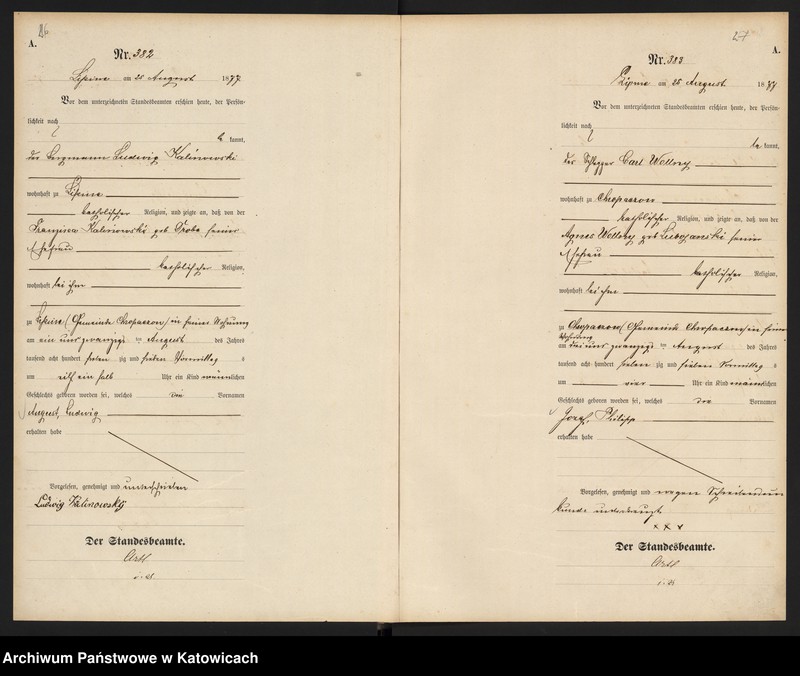 26
A.
Nr. 382
Lipine am 25 August 1877
Vor dem unterzeichneten Standesbeamten erschien heute, der Persön-
lichkeit nach
be kannt,
der Bergmann Ludwig Kalinowski
wohnhaft zu Lipine
katholischer Religion, und zeigte an, daß von der
Franzisca Kalinowski geb seiner
Ehefrau
katholischer Religion,
wohnhaft bei ihm
zu Lipine (Gemeinde Chropaczow) in seiner Wohnung
am ein und zwanzigs ten August des Jahres
tausend acht hundert sieben zig und sieben Vormittags
um eilf ein halb Uhr ein Kind männlichen
Geschlechts geboren worden sei, welches die Vornamen
August, Ludwig
erhalten habe
Vorgelesen, genehmigt und unterschrieben
Ludwig Kalinowsky
Der Standesbeamte.
27
A.
Nr. 383
Lipine am 25 August 1877
Vor dem unterzeichneten Standesbeamten erschien heute, der Persön-
lichkeit nach
be kannt,
der Schlepper Carl
wohnhaft zu Chropaczow
katholischer Religion, und zeigte an, daß von der
Agnes geb seiner
Ehefrau
katholischer Religion,
wohnhaft bei ihm
zu Chropaczow (Gemeinde Chropaczow) in seiner
Wohnung
am drei und zwanzigs ten August des Jahres
tausend acht hundert sieben zig und sieben Vormittags
um vier Uhr ein Kind männlichen
Geschlechts geboren worden sei, welches die Vornamen
Josef, Philipp
erhalten habe
Vorgelesen, genehmigt und wegen Schreibens un
kunde unterkreuzt
x x x
Der Standesbeamte.
Archiwum Państwowe w Katowicach